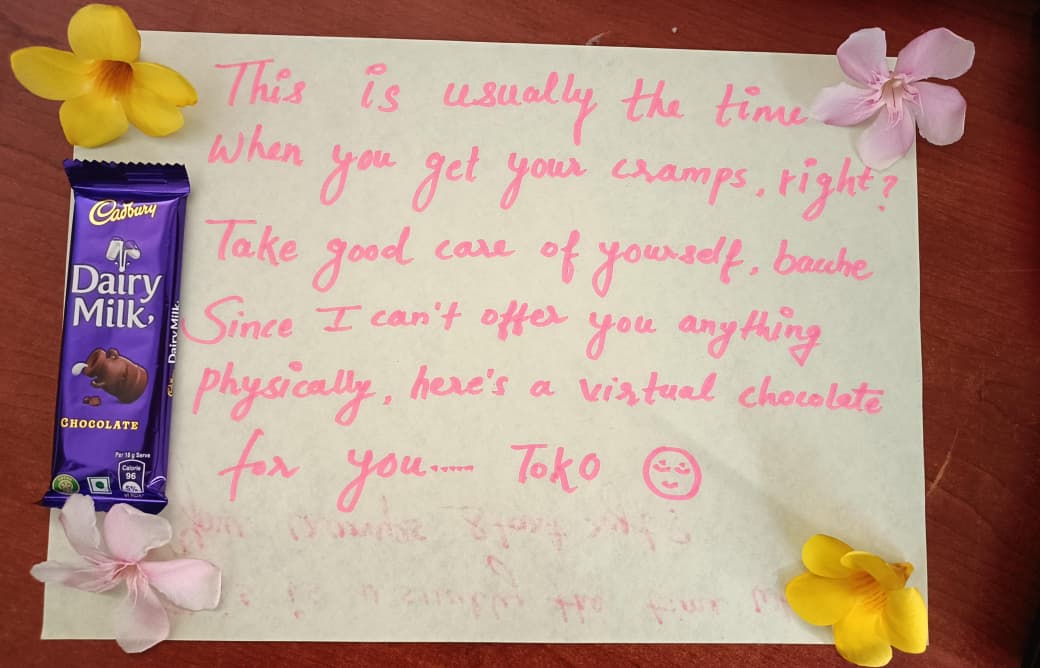 This is usually the time
When you get your cramps, right?
Take good care of yourself, bacche
Since I can't offer you anything
physically, here's a virtual chocolate
for you...... Toko
Cadbury
Dairy
Milk
Dairy Milk
CHOCOLATE
Per 18 g Serve
Calorie
96
5%